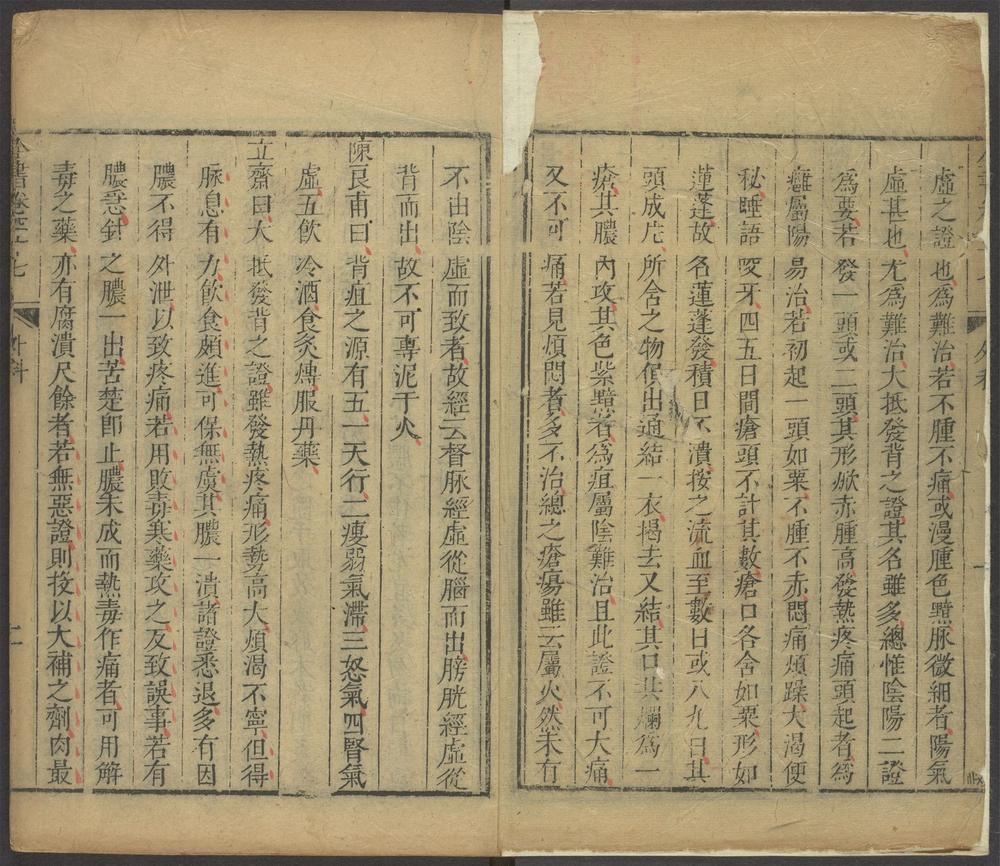 虛之證也爲難治若不腫不痛或漫腫色黯脉微細者陽氣
虛甚也尤爲難治大抵發背之證其名雖多總惟陰陽二證
爲要若發一頭或二頭其形焮赤腫高發熱疼痛頭起者爲
癰屬陽易治若初起一頭如粟不腫不赤悶痛煩躁大渴便
秘睡語咬牙四五日間瘡頭不計其數瘡口各含如粟形如
蓮蓬故名蓮蓬發積日不潰按之流血至數日或八九日其
頭成片所含之物俱出通結一衣揭去又結其口共爛爲一
瘡其膿內攻其色紫黯者爲疽屬陰難治且此證不可大痛
又不可痛若見煩悶者多不治總之瘡瘍雖云屬火然未有
不由陰虛而致者故經云督脉經虛從腦而出膀胱經虛從
背而出故不可專泥于火
陳良甫曰背疽之源有五一天行二瘦弱氣滯三怒氣四腎氣
虛五飲冷酒食炙煿服丹藥
立齋曰大抵發背之證雖發熱疼痛形勢高大煩渴不寧但得
脉息有力飲食頗進可保無虞其膿一潰諸證悉退多有因
膿不得外泄以致疼痛若用敗毒寒藥攻之反致誤事若有
膿急針之膿一出苦楚卽止膿未成而熱毒作痛者可用解
毒之藥亦有腐潰尺餘者若無惡證則投以大補之劑肉最
外科